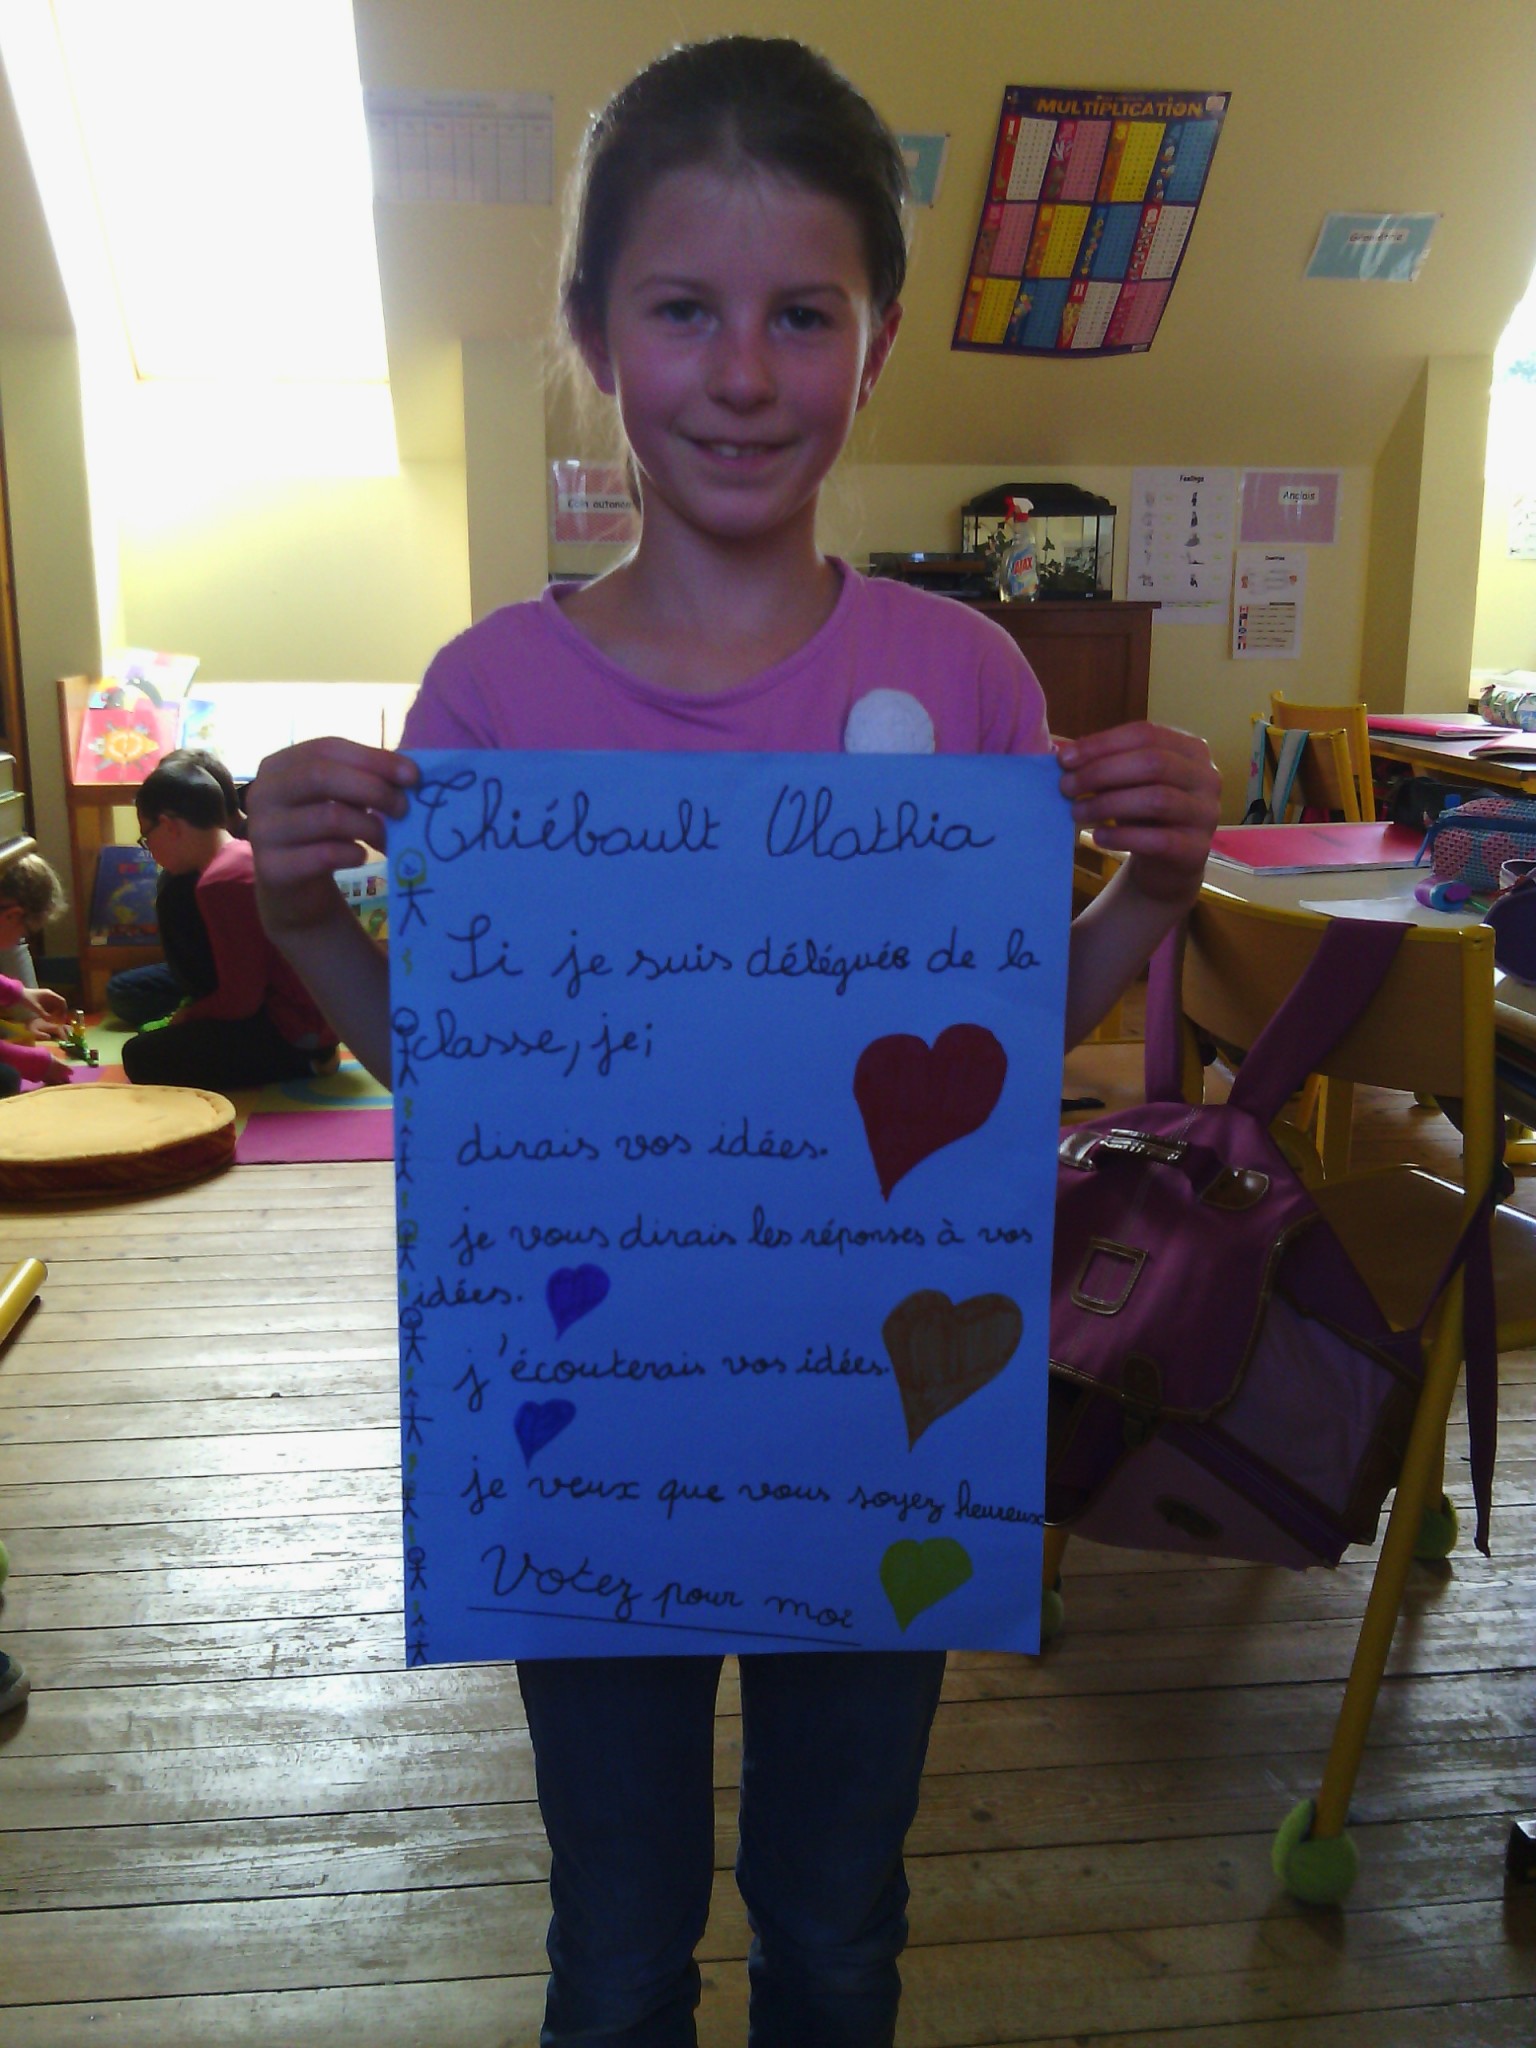 MULTIPLICATION
Géométrie
Coin autonome
Feelings
Anglais
AJAX
Thiébault Olathia
Si je suis déléguée de la
classe, je;
dirais vos idées.
je vous dirais les réponses à vos
idées.
j'écouterais vos idées.
je veux que vous soyez heureux
Votez pour moi